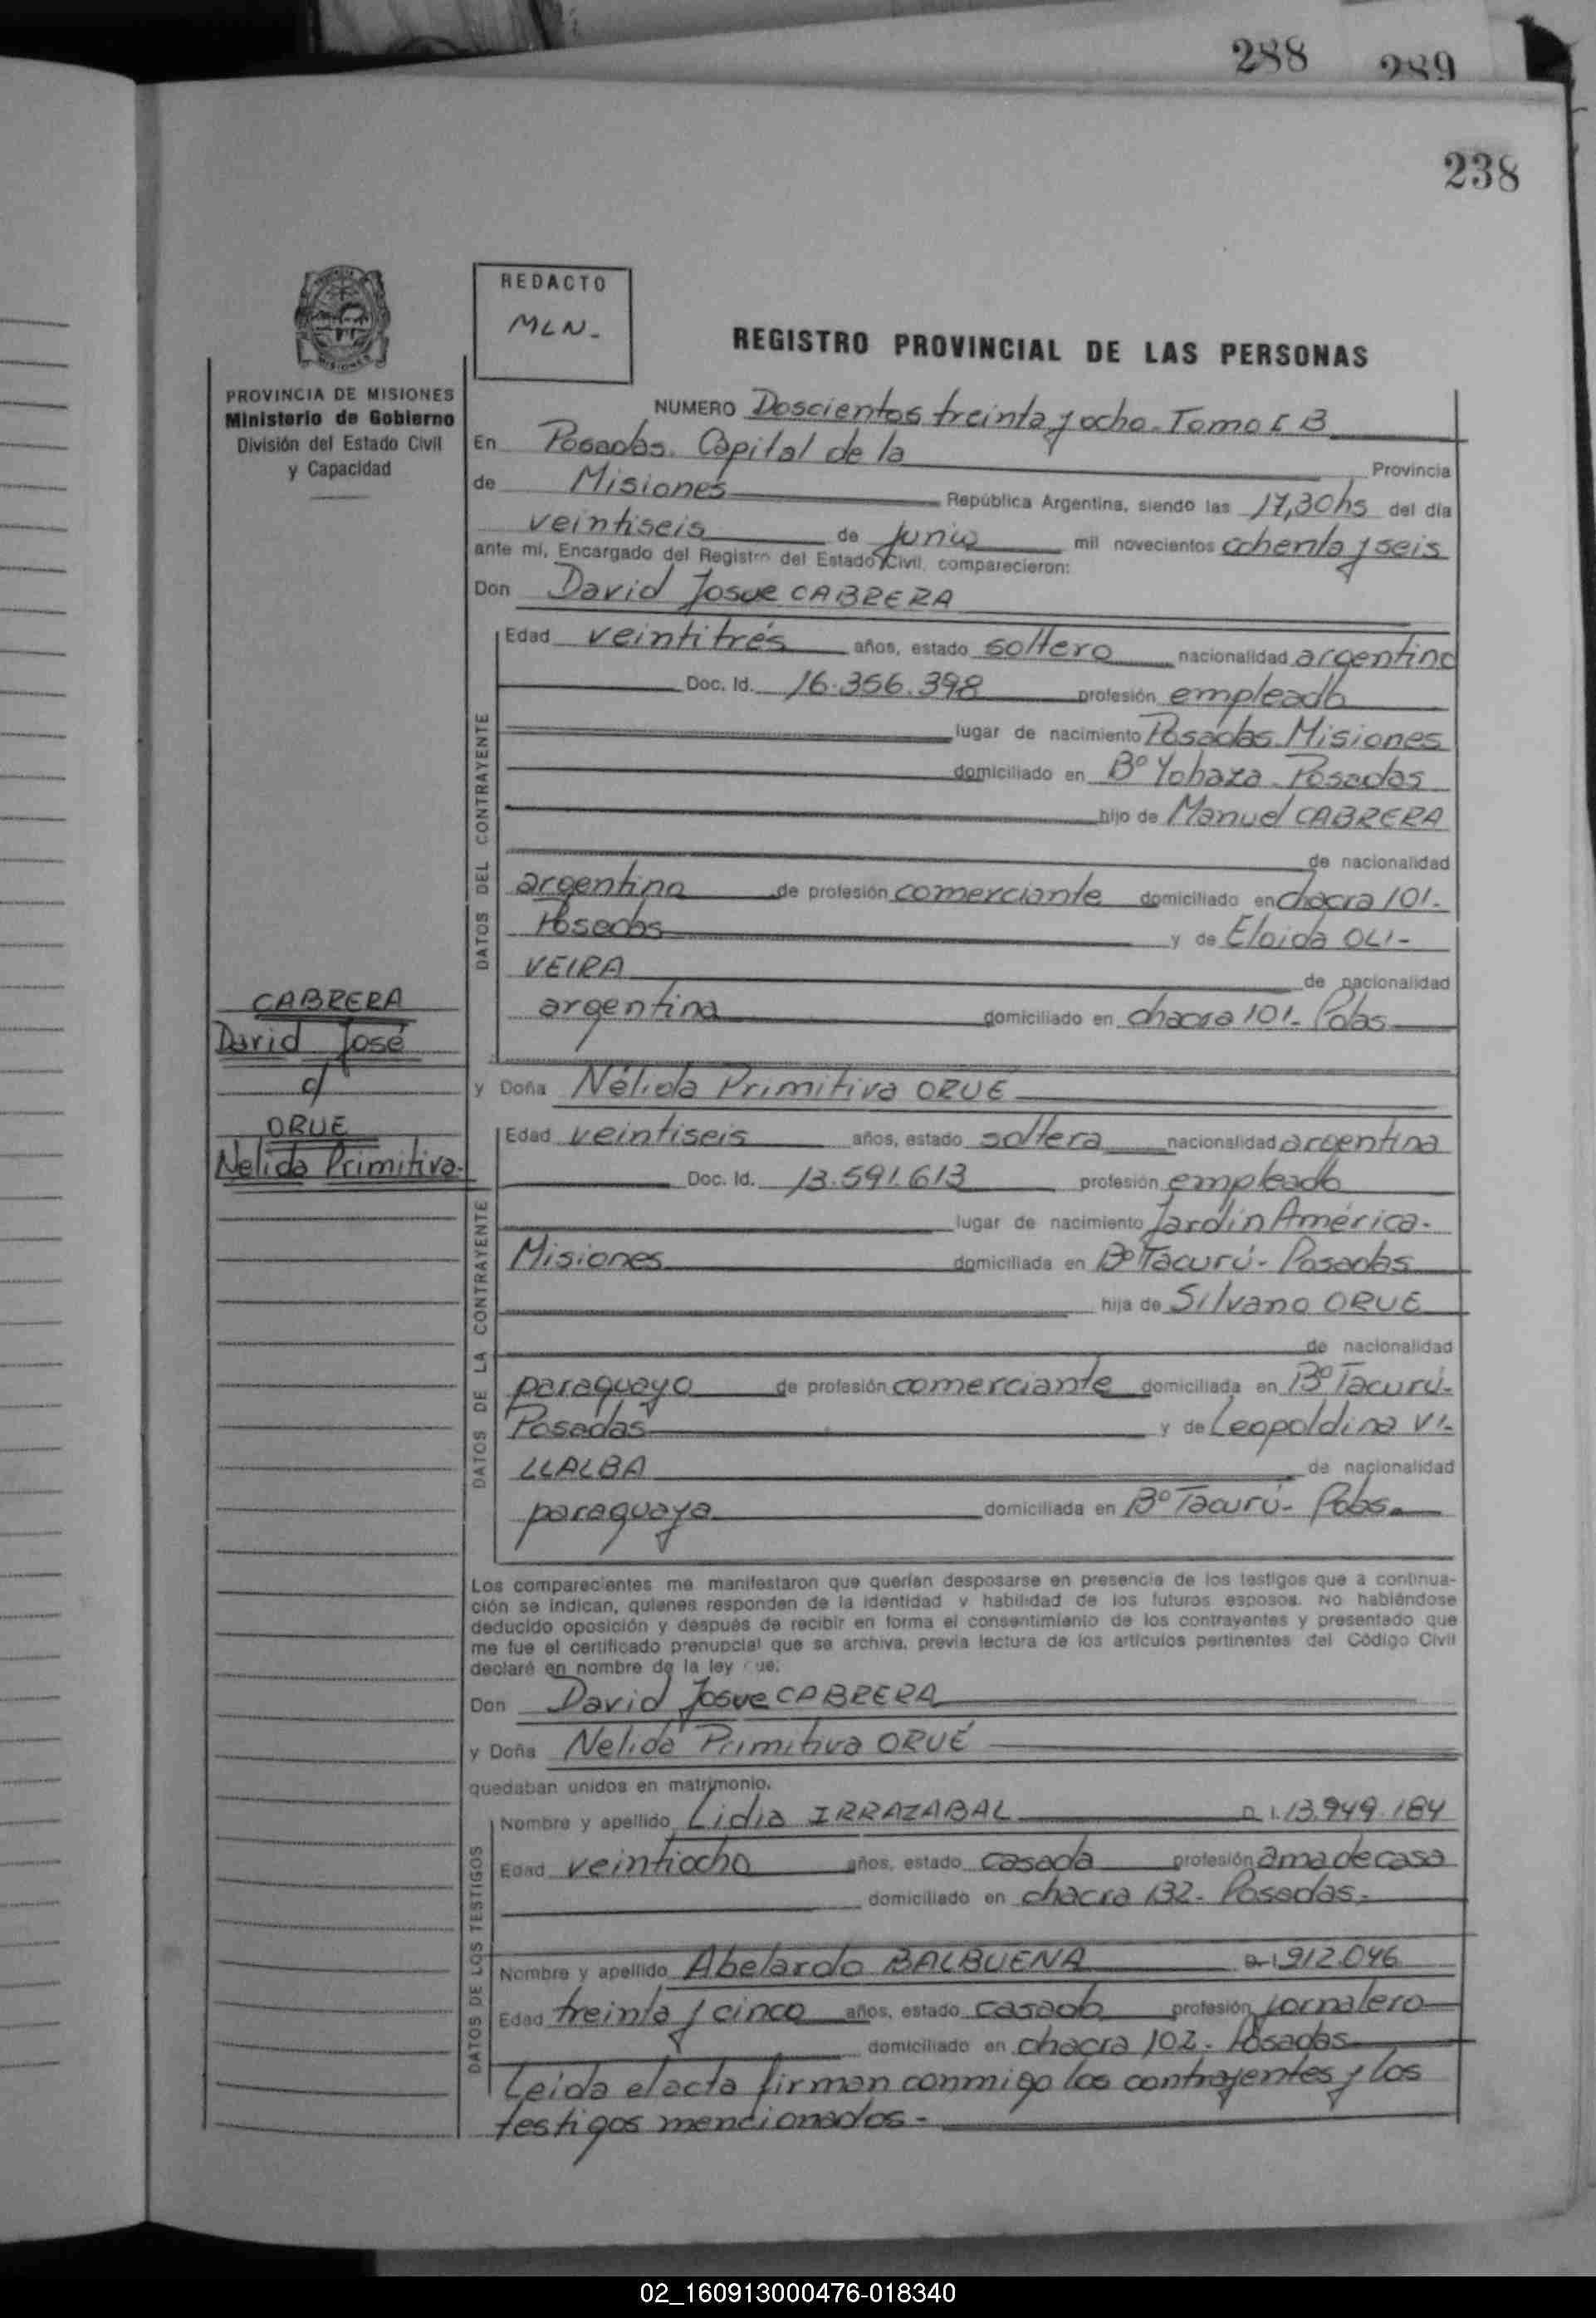 288 289
238
REDACTO
MLN-
REGISTRO PROVINCIAL DE LAS PERSONAS
PROVINCIA DE MISIONES
Ministerio de Gobierno
División del Estado Civil
y Capacidad
NUMERO Doscientos treinta y ocho. Tomo I B
En Posadas. Capital de la Provincia
de Misiones República Argentina, siendo las 17,30hs del día
veintiseis de junio mil novecientos ochenta y seis
ante mí, Encargado del Registro del Estado Civil, comparecieron:
Don David Josue CABRERA
DATOS DEL CONTRAYENTE
Edad veintitrés años, estado soltero nacionalidad argentino
Doc. Id. 16.356.398 profesión empleado
lugar de nacimiento Posadas Misiones
domiciliado en Bº Yohaza - Posadas
hijo de Manuel CABRERA
de nacionalidad
argentino de profesión comerciante domiciliado en chacra 101-
Posadas y de Eloida OLI-
VEIRA de nacionalidad
argentina domiciliado en chacra 101- Pdas
CABRERA
David José
c/
ORUE
Nelida Primitiva-
y Doña Nélida Primitiva ORUÉ
DATOS DE LA CONTRAYENTE
Edad veintiseis años, estado soltera nacionalidad argentina
Doc. Id. 13.591.613 profesión empleada
lugar de nacimiento Jardín América-
Misiones domiciliada en Bº Tacurú- Posadas
hija de Silvano ORUÉ
de nacionalidad
paraguayo de profesión comerciante domiciliada en Bº Tacurú-
Posadas y de Leopoldina VI-
LLALBA de nacionalidad
paraguaya domiciliada en Bº Tacurú- Pdas-
Los comparecientes me manifestaron que querían desposarse en presencia de los testigos que a continua-
ción se indican, quienes responden de la identidad y habilidad de los futuros esposos. No habiéndose
deducido oposición y después de recibir en forma el consentimiento de los contrayentes y presentado que
me fue el certificado prenupcial que se archiva, previa lectura de los artículos pertinentes del Código Civil
declaré en nombre de la ley que:
Don David Josue CABRERA
y Doña Nelida Primitiva ORUÉ
quedaban unidos en matrimonio.
DATOS DE LOS TESTIGOS
Nombre y apellido Lidia IRRAZABAL D.I.13.949.184
Edad veintiocho años, estado casada profesión ama de casa
domiciliado en chacra 132- Posadas-
Nombre y apellido Abelardo BALBUENA D.I 912.046
Edad treinta y cinco años, estado casado profesión jornalero
domiciliado en chacra 102- Posadas
Leida el acta firman conmigo los contrayentes y los
testigos mencionados-
02_160913000476-018340